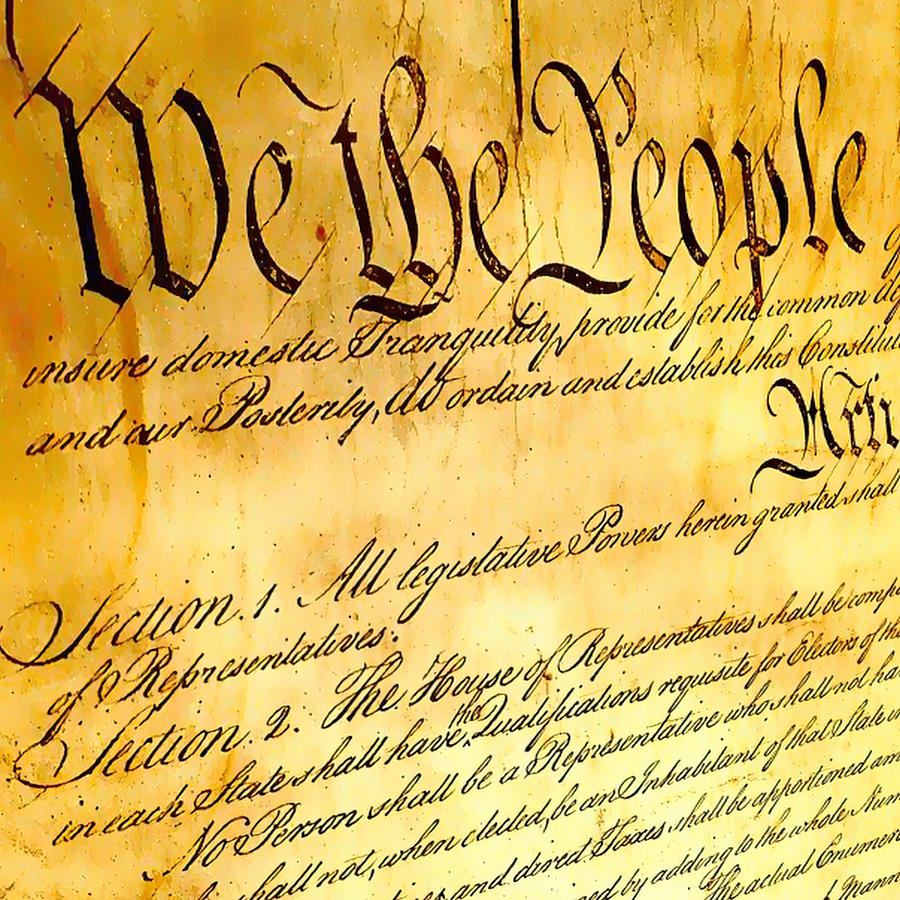 We the People
insure domestic Tranquility, provide for the common
and our Posterity, do ordain and establish this
Section. 1. All legislative Powers herein granted shall
of Representatives.
Section. 2. The House of Representatives shall be
in each State shall have the Qualifications requisite for Electors of the
No Person shall be a Representative who shall not
shall not, when elected, be an Inhabitant of that State
and direct Taxes shall be apportioned
by adding to the whole
The actual